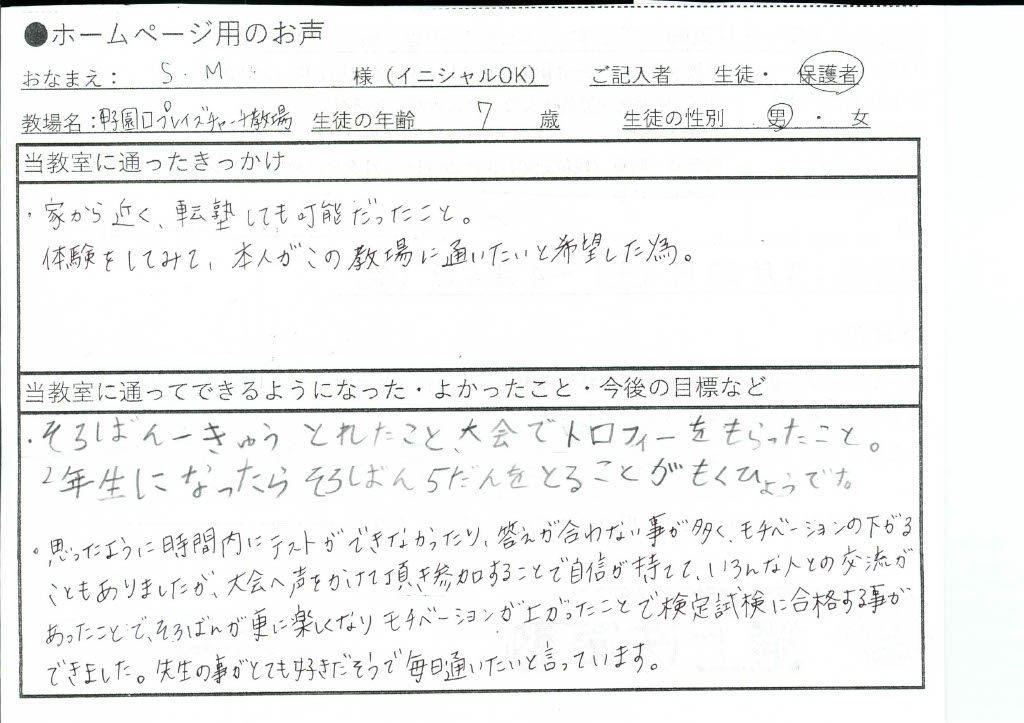 ●ホームページ用のお声
おなまえ： S．M 様（イニシャルOK） ご記入者 生徒・ 保護者
教場名：甲子園口プレイズチャーチ教場 生徒の年齢 7 歳 生徒の性別 男 ・ 女
当教室に通ったきっかけ
・家から近く、転塾しても可能だったこと。
体験をしてみて、本人がこの教場に通いたいと希望した為。
当教室に通ってできるようになった・よかったこと・今後の目標など
・そろばん一きゅう とれたこと、大会でトロフィーをもらったこと。
2年生になったらそろばん5だんをとることがもくひょうです。
。思ったように時間内にテストができなかったり、答えが合わない事が多く、モチベーションの下がる
こともありましたが、大会へ声をかけて頂き参加することで自信が持てて、いろんな人との交流が
あったことで、そろばんが更に楽しくなりモチベーションが上がったことで検定試験に合格する事が
できました。先生の事がとても好きだそうで毎日通いたいと言っています。